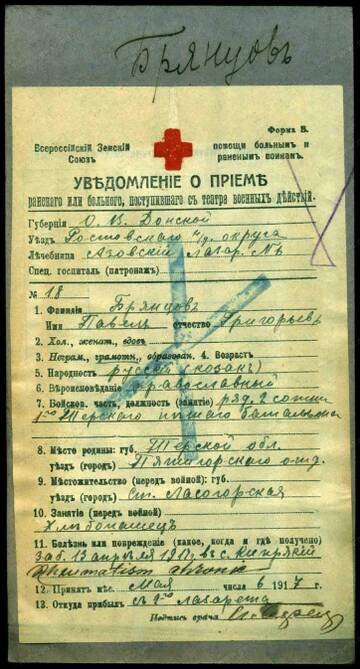 Брянцовъ
Форма В.
Всероссійскій Земскій
Союзъ
помощи больнымъ и
раненымъ воинамъ.
УВѢДОМЛЕНІЕ О ПРІЕМѢ
раненаго или больного, поступившаго съ театра военныхъ дѣйствій.
Губернія О. В. Донской
Уѣздъ Ростовскаго н/Д. округа
Лѣчебница Азовскій Лазар. №
Спец. госпиталь (патронажъ)
№ 18
1. Фамилія Брянцовъ
Имя Павелъ отчество Григорьевъ
2. Хол., женат., вдовъ
3. Неграм., грамотн., образован. 4. Возрастъ
5. Народность русскій (козакъ)
6. Вѣроисповѣданіе православный
7. Войсков. часть, должность (занятіе) ряд. 2 сотни
1го Терскаго пѣшаго батальона
8. Мѣсто родины: губ. Терской обл.
уѣздъ (городъ) Пятигорскаго отд.
9. Мѣстожительство (передъ войной): губ.
уѣздъ (городъ) Ст. Лысогорская
10. Занятіе (передъ войной)
Хлѣбопашецъ
11. Болѣзнь или поврежденіе (какое, когда и гдѣ получено)
заб. 13 апрѣля 1917 въ с.
12. Принятъ мѣс. Мая числа 6 1917
13. Откуда прибылъ съ лазарета
Подпись врача